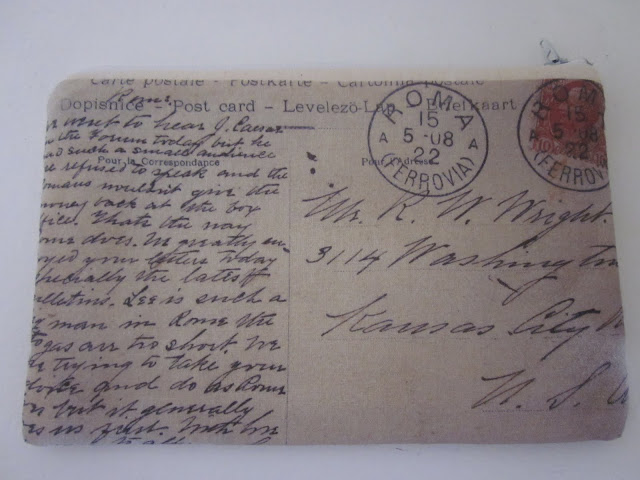 Carte postale - Postkarte - Cartolina postale
Rome
Dopisnice - Post card - Levelezö-Lap - Briefkaart
went to hear J. Caesar
the Forum today but he
such a small audience
Pour la Correspondance
Pour l'Adresse
refused to speak and the
Romans wouldn't give the
money back at the box
office. Thats the way
Rome does. We greatly en-
joyed your letters today
especially the latest
bulletins. Lee is such a
man in Rome the
togas are too short. We
trying to take your
advice and do as Rome
but it generally
us first. With love
to all
ROMA
15
5-08
A A
22
(FERROVIA)
ROMA
15
5-08
A
22
(FERROVIA)
Mr. R. W. Wright.
3114 Washington
Kansas City
U. S. A